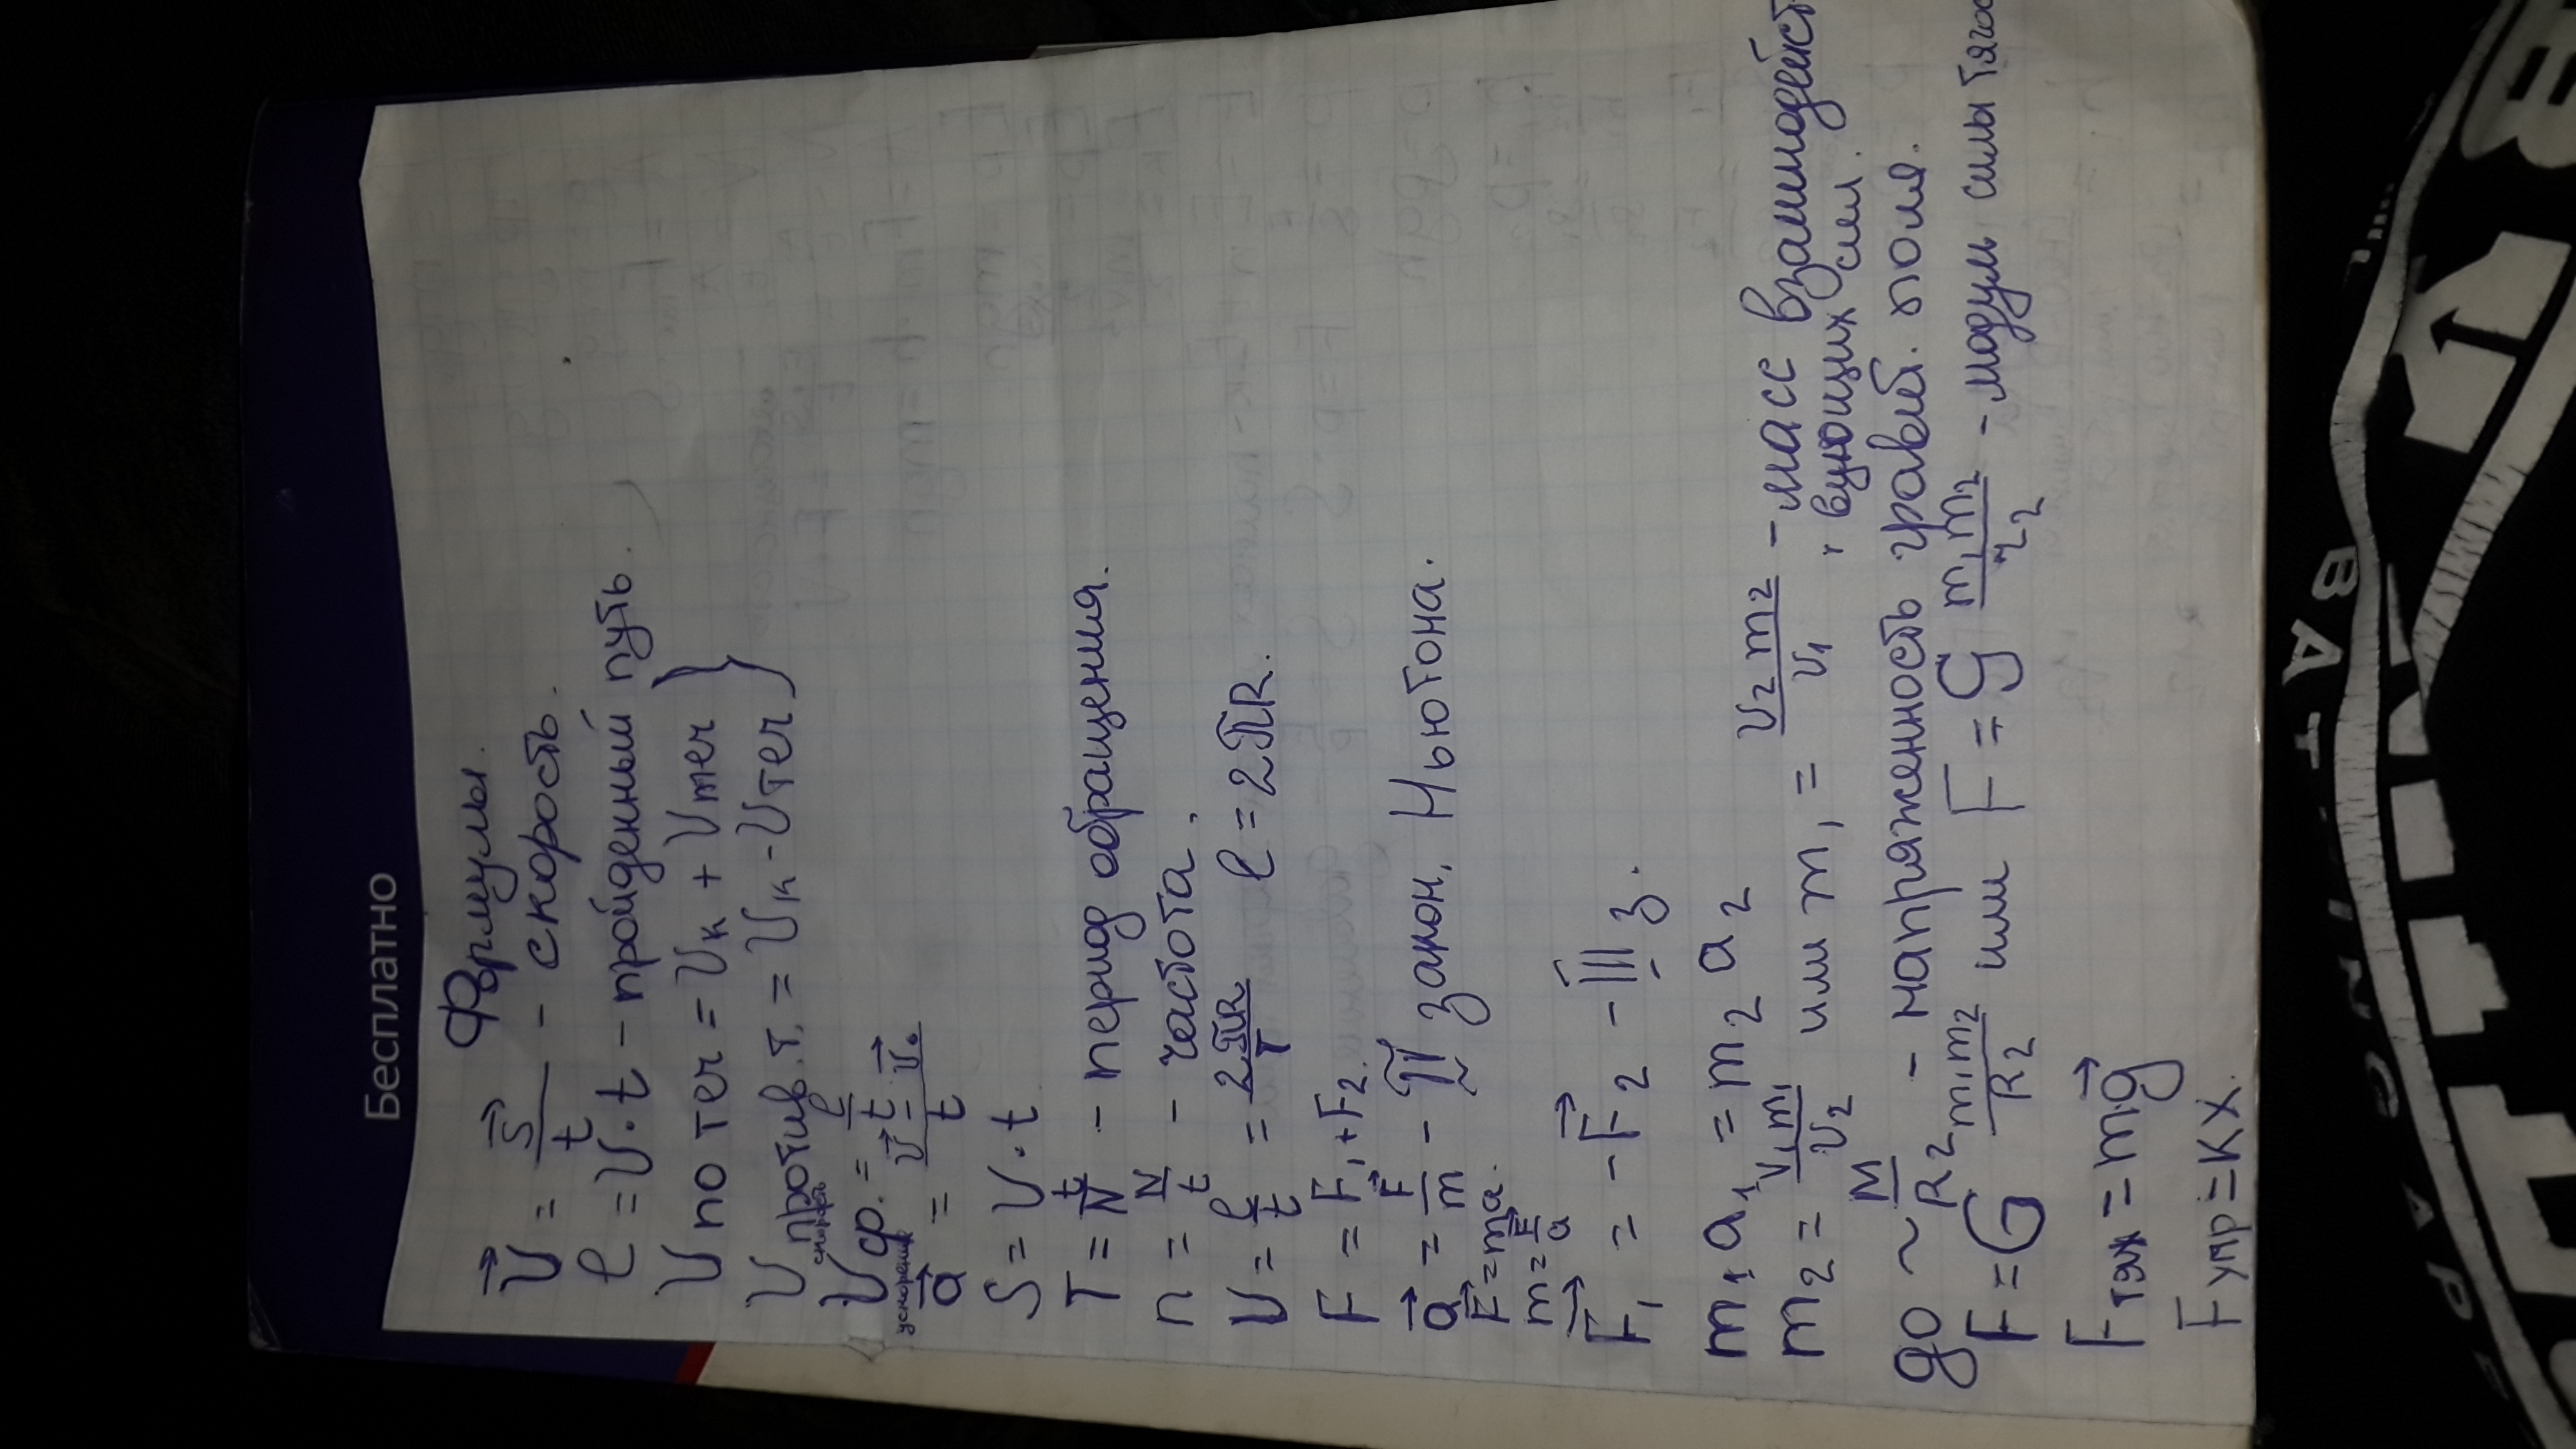 Бесплатно
Формулы.
v⃗ = s⃗/t - скорость.
l = v·t - пройденный путь.
v по теч = vк + vтеч }
v против.т. = vк - vтеч
скорость
vср. = l/t
ускорение
a⃗ = (v⃗ - v⃗₀)/t
S = v·t
T = t/N - период обращения.
n = N/t - частота.
v = l/t = 2πR/T l = 2πR.
F = F₁ + F₂.
a⃗ = F⃗/m - II закон, Ньютона.
F⃗ = ma⃗.
m = F⃗/a⃗
F⃗₁ = -F⃗₂ - III з.
m₁a₁ = m₂a₂
m₂ = v₁m₁/v₂ или m₁ = v₂m₂/v₁ - масс взаимодейст
вующих сил.
go ~ M/R2 - напряженность гравит. поля.
F = G m₁m₂/R2 или F = G m₁m₂/r2 - модуль силы
Fтяж = mg⃗
Fупр = кх.
BAT